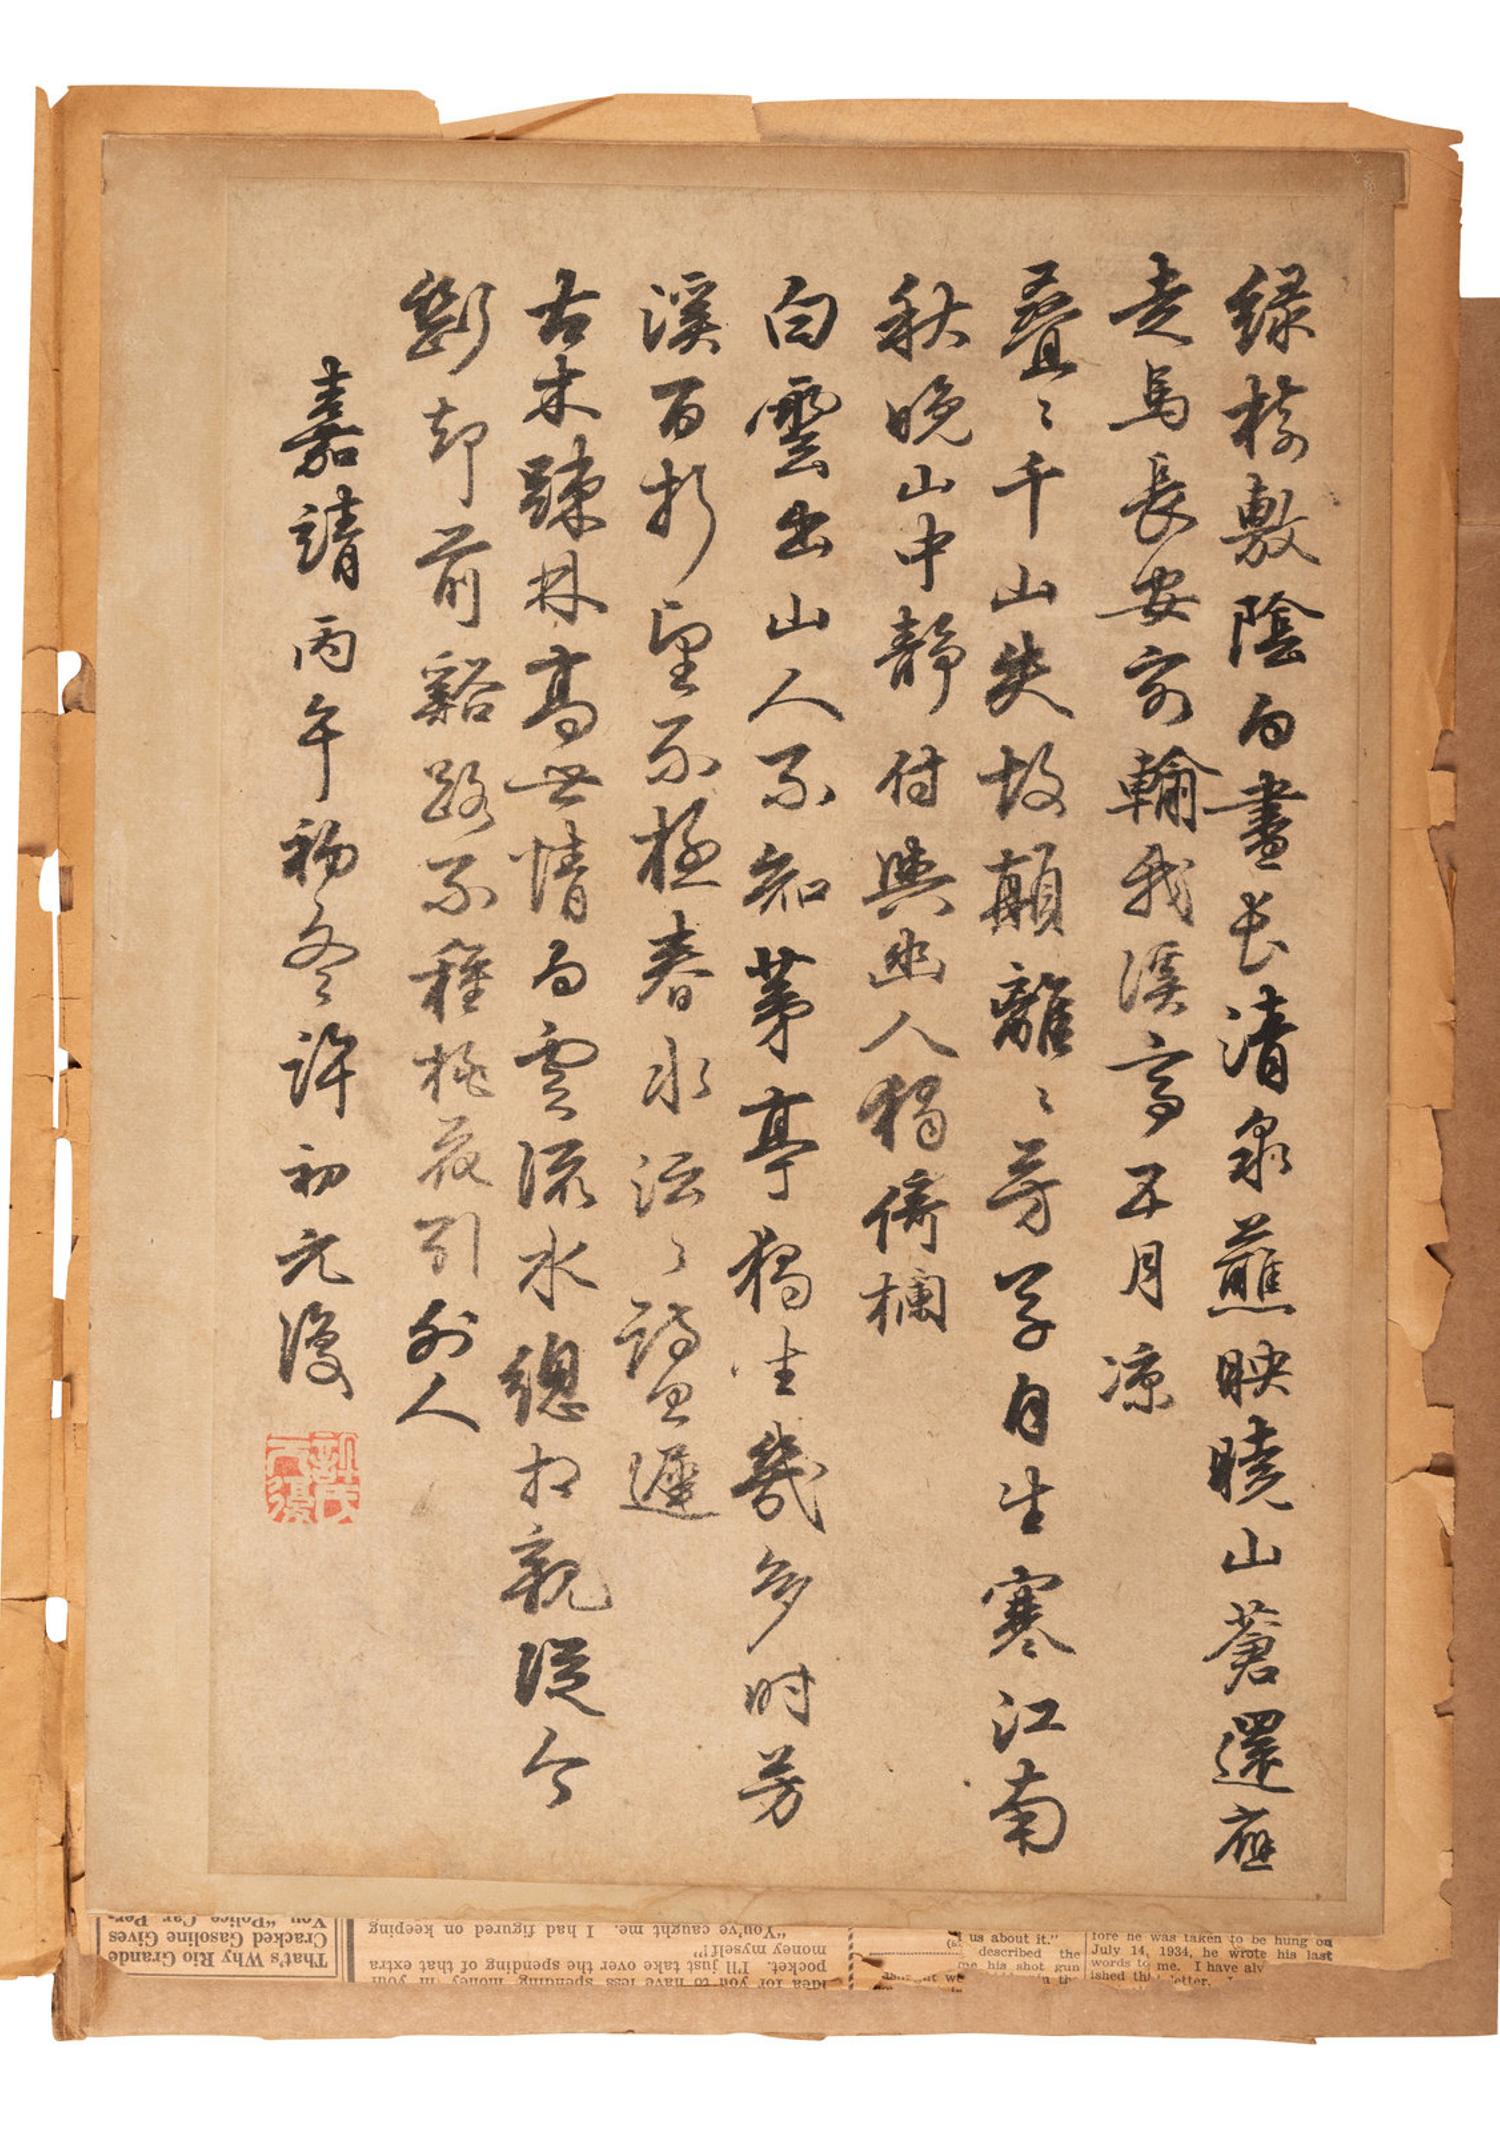 綠樹敷陰白晝長清泉蘸映曉山蒼還應
走馬長安客輸我溪亭五月凉
叠〻千山失故顛離〻芳草自生寒江南
秋晚山中靜付與幽人獨倚欄
白雲出山人不知茅亭獨坐幾多時芳
溪百折望不極春水泛〻詩思遲
古木踈林高世情白雲流水總相親從今
斷却前谿路不種桃花引外人
嘉靖丙午初冬許初元復
許氏元復
That's Why Rio Grande
Cracked Gasoline Gives
You "Police Car Per-
idea for you to have less spending money in your
pocket. I'll just take over the spending of that extra
money myself!"
"You've caught me. I had figured on keeping
us about it."
described the
me his shot gun
fore he was taken to be hung on
July 14, 1934, he wrote his last
words to me. I have
ished letter.